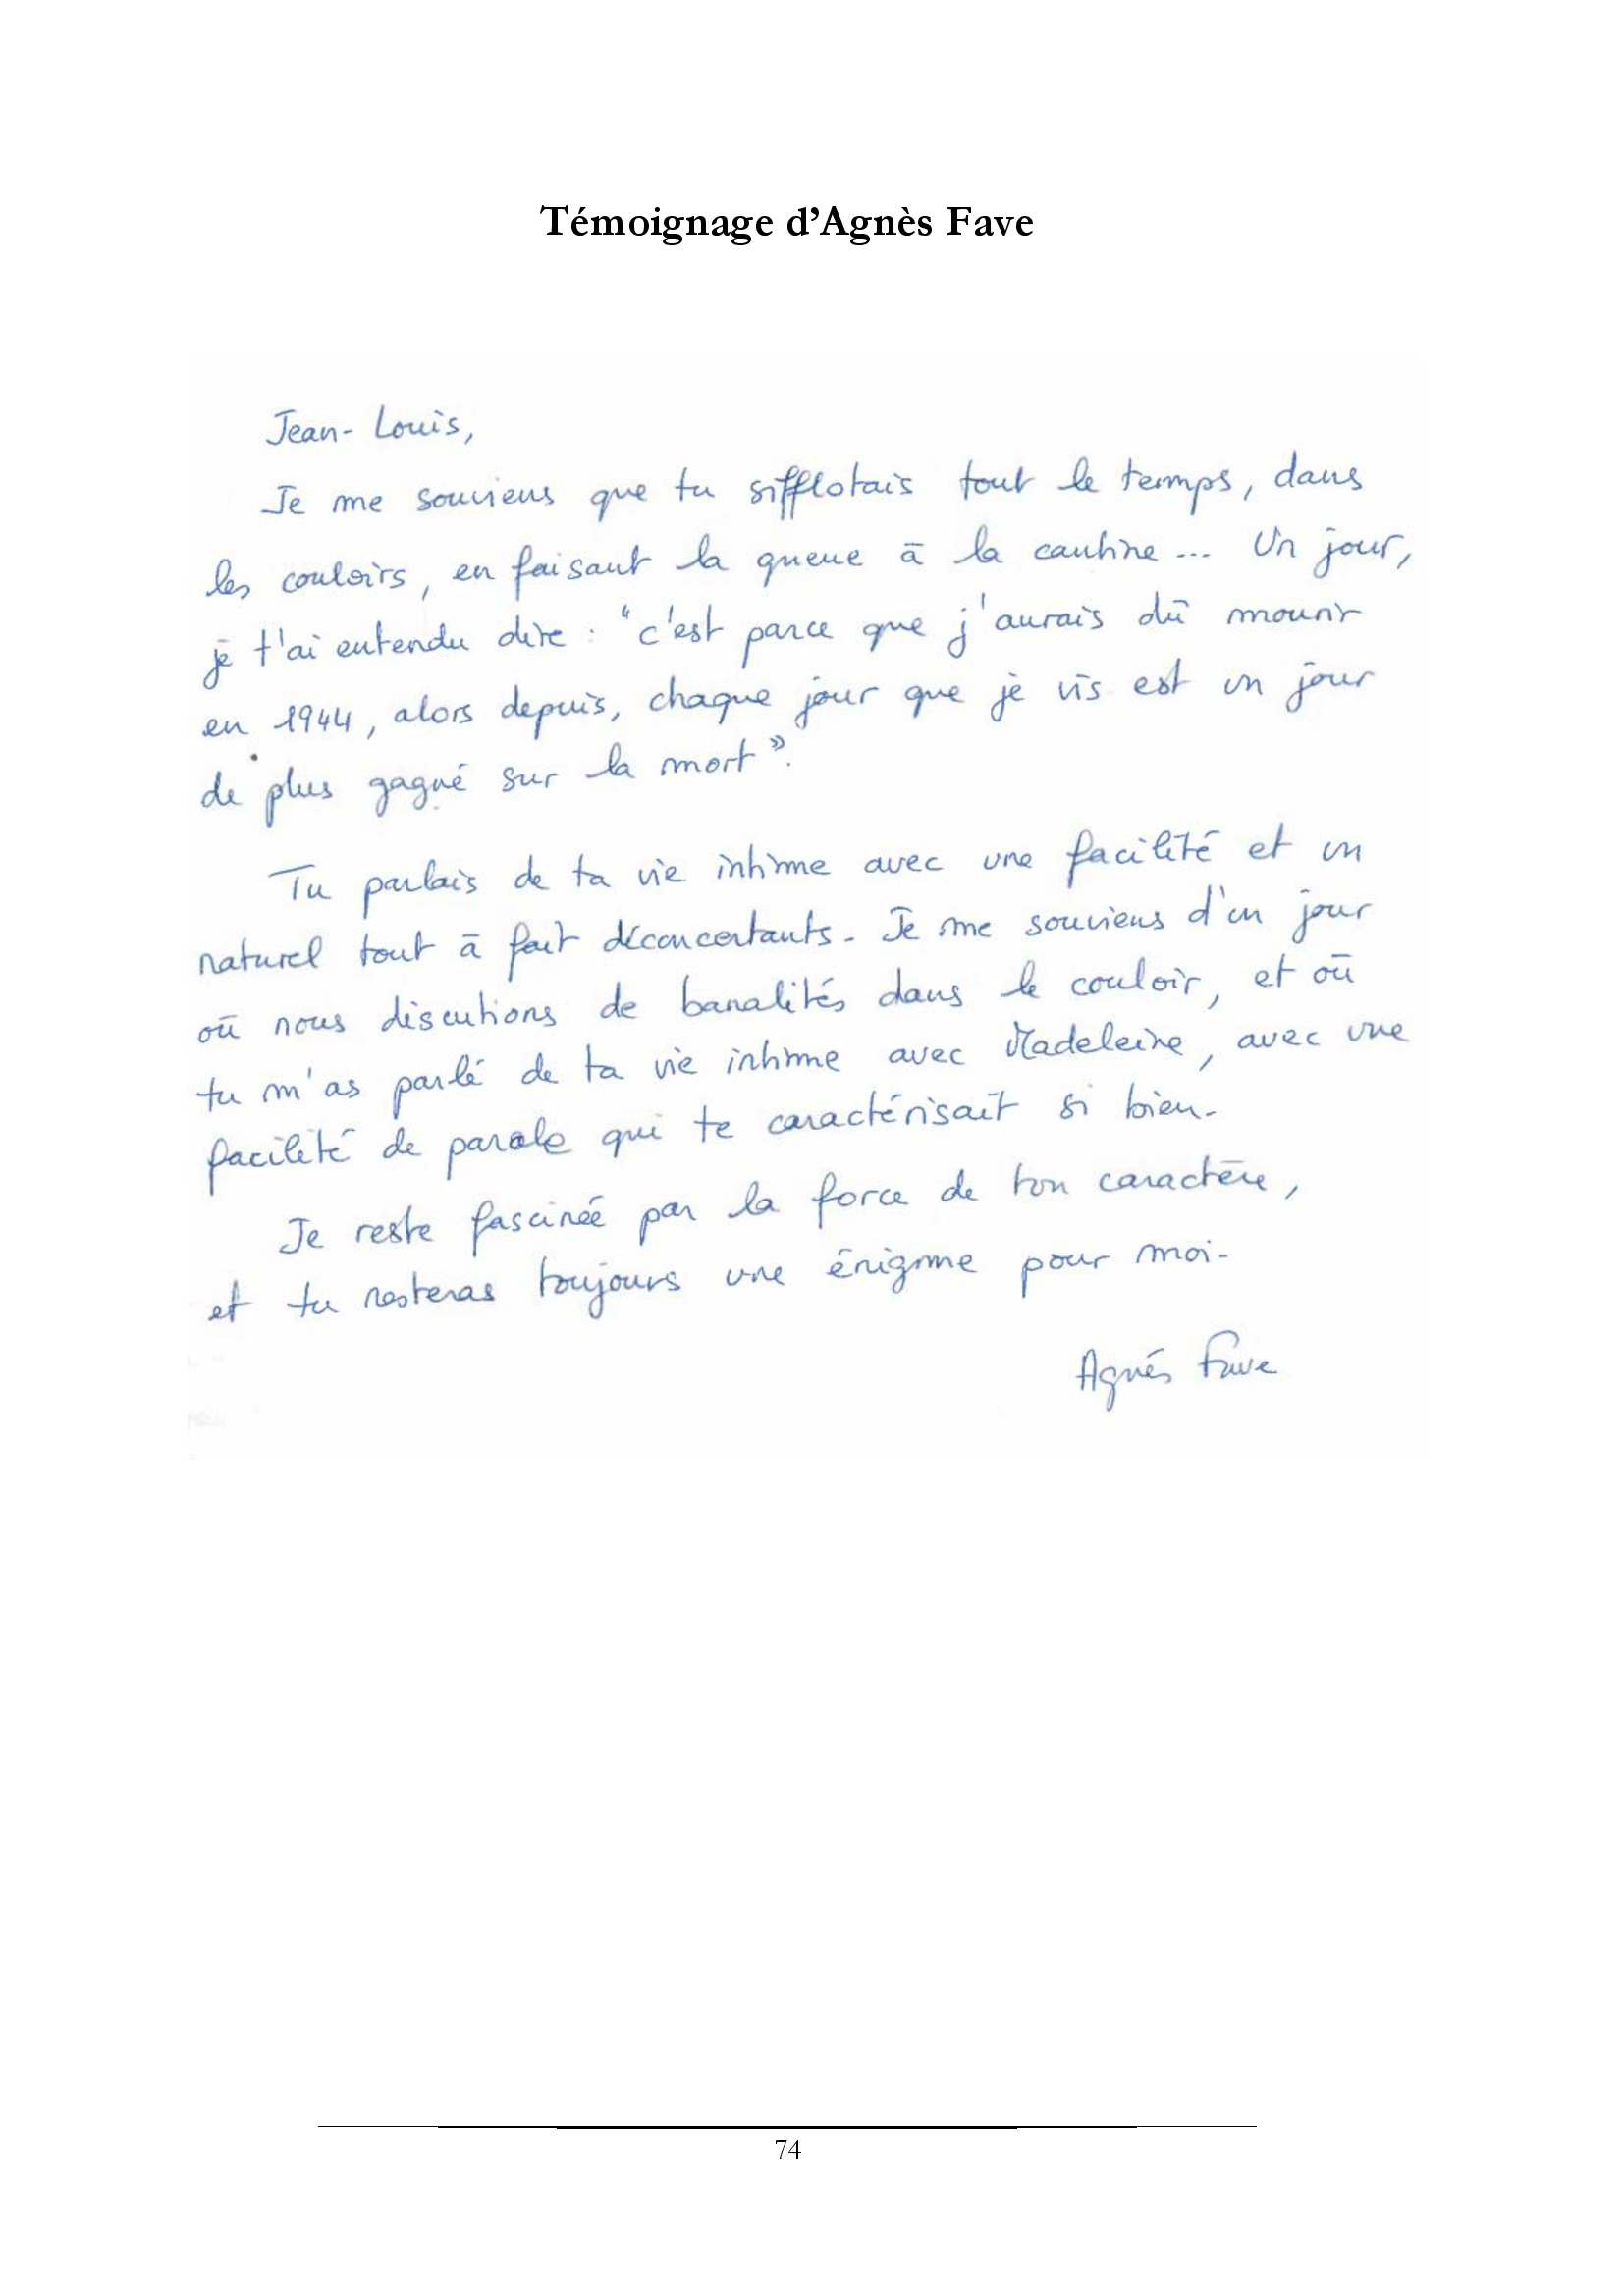 Témoignage d'Agnès Fave
Jean-Louis,
Je me souviens que tu sifflotais tout le temps, dans
les couloirs, en faisant la queue à la cantine... Un jour,
je t'ai entendu dire : "c'est parce que j'aurais dû mourir
en 1944, alors depuis, chaque jour que je vis est un jour
de plus gagné sur la mort".
Tu parlais de ta vie intime avec une facilité et un
naturel tout à fait déconcertants. Je me souviens d'un jour
où nous discutions de banalités dans le couloir, et où
tu m'as parlé de ta vie intime avec Madeleine, avec une
facilité de parole qui te caractérisait si bien.
Je reste fascinée par la force de ton caractère,
et tu resteras toujours une énigme pour moi.
Agnès Fave
74